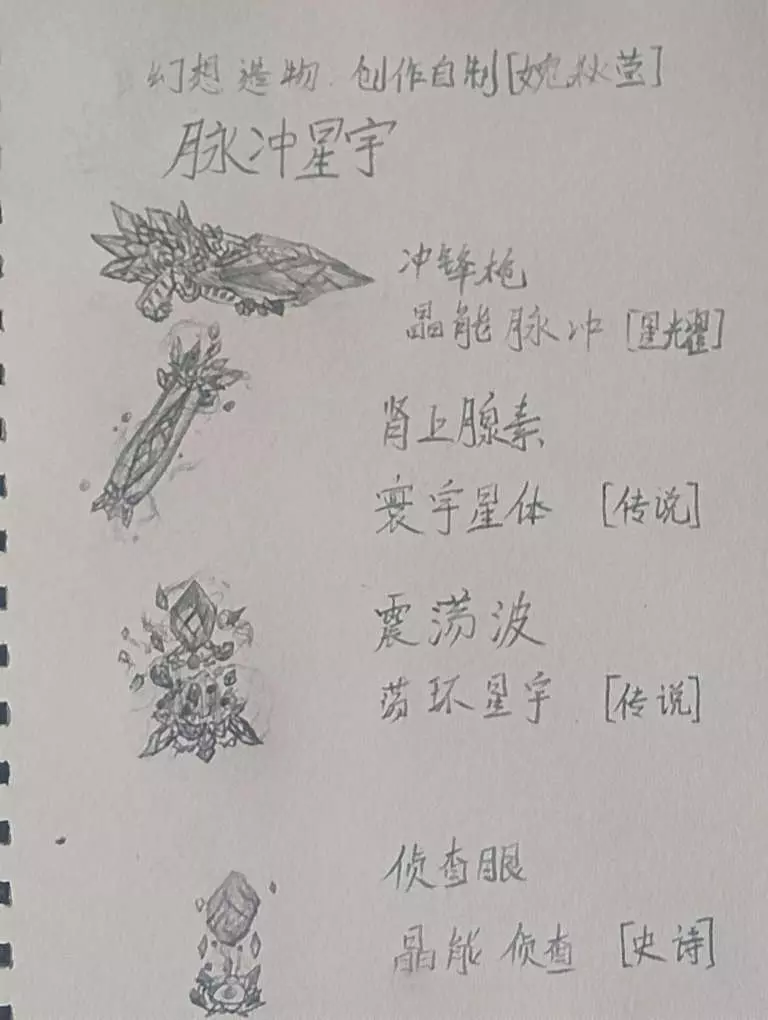 幻想造物 创作自制[婉秋莹]
脉冲星宇
冲锋枪
晶能脉冲 [星光耀]
肾上腺素
寰宇星体 [传说]
震荡波
荡环星宇 [传说]
侦查眼
晶能侦查 [史诗]